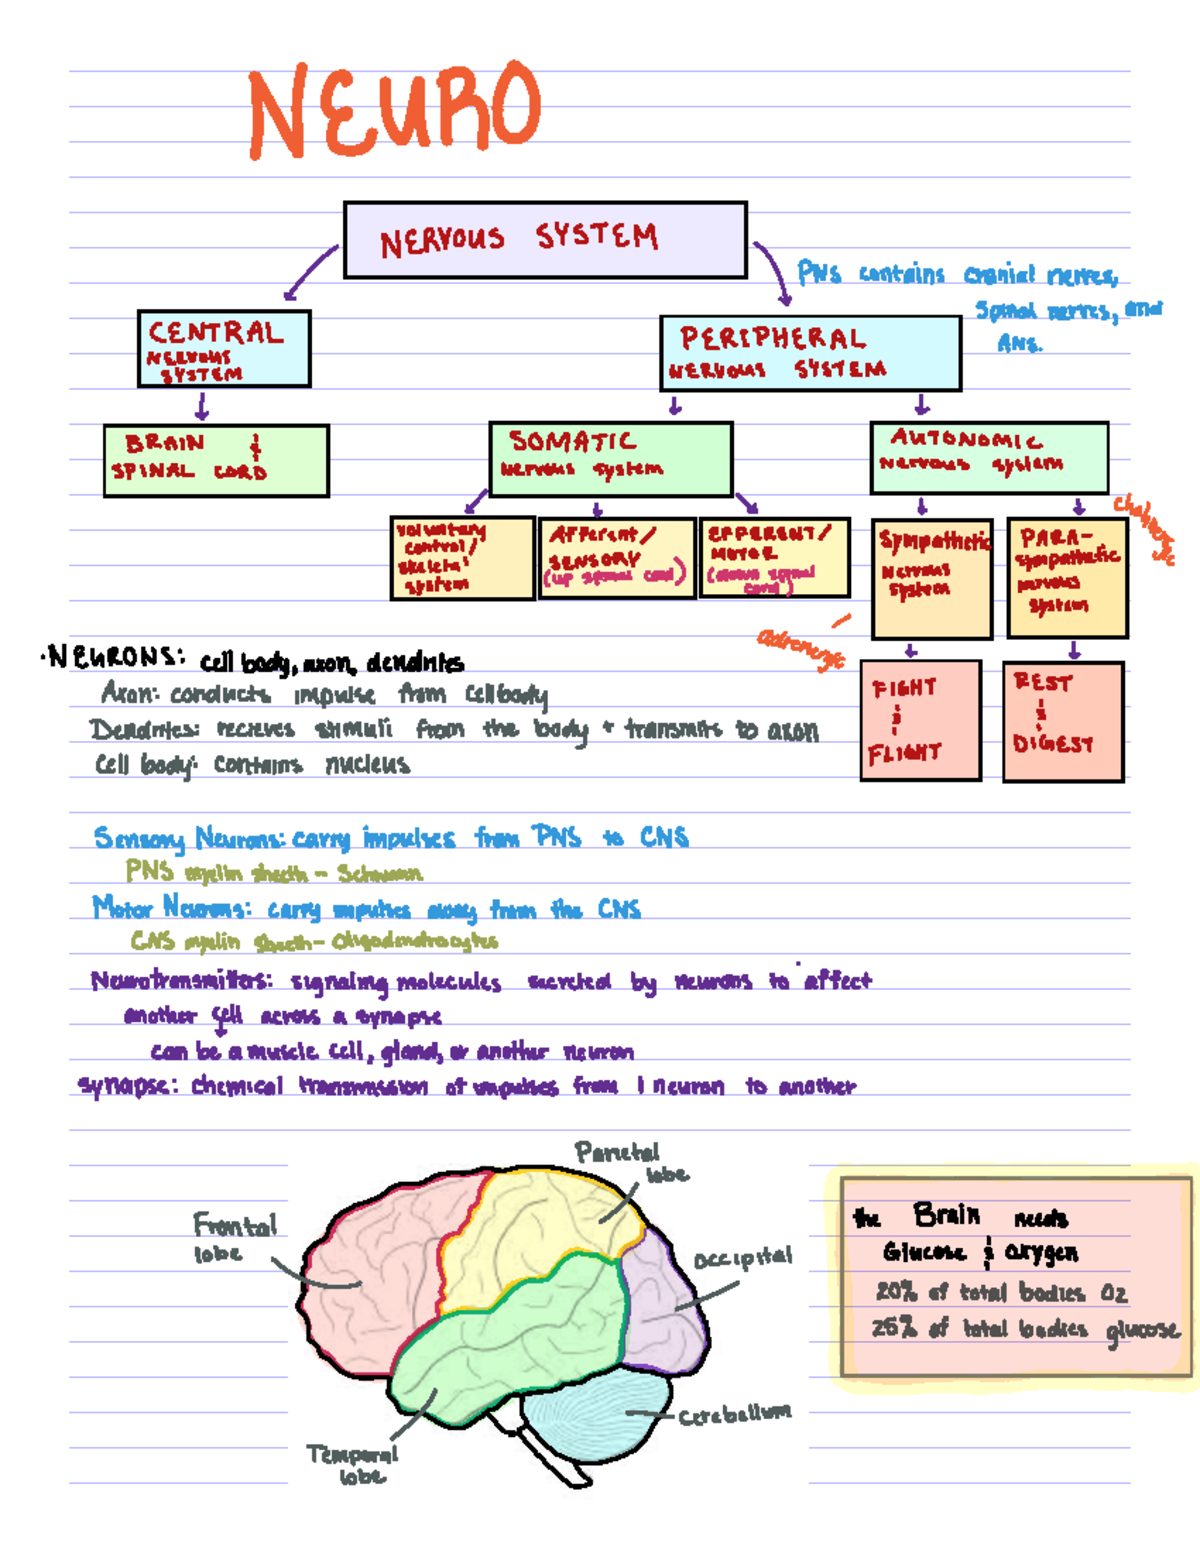 NEURO
NERVOUS SYSTEM
PNS contains cranial nerves,
spinal nerves, and
ANS.
CENTRAL
NERVOUS
SYSTEM
PERIPHERAL
NERVOUS SYSTEM
BRAIN &
SPINAL CORD
SOMATIC
nervous system
AUTONOMIC
nervous system
voluntary
control/
skeletal
system
Afferent/
SENSORY
(up spinal cord)
EFFERENT/
MOTOR
(down spinal
cord)
Sympathetic
Nervous
system
PARA-
sympathetic
nervous
system
adrenergic
FIGHT
&
FLIGHT
REST
&
DIGEST
·NEURONS: cell body, axon, dendrites
Axon: conducts impulse from cell body
Dendrites: recieves stimuli from the body + transmits to axon
Cell body: contains nucleus
Sensory Neurons: carry impulses from PNS to CNS
PNS myelin sheath - Schwann
Motor Neurons: carry impulses away from the CNS
CNS myelin sheath - Oligodendrocytes
Neurotransmitters: signaling molecules secreted by neurons to affect
another cell across a synapse
can be a muscle cell, gland, or another neuron
synapse: chemical transmission of impulses from 1 neuron to another
Parietal
lobe
Frontal
lobe
occipital
Cerebellum
Temporal
lobe
the Brain needs
Glucose & oxygen
20% of total bodies O2
25% of total bodies glucose